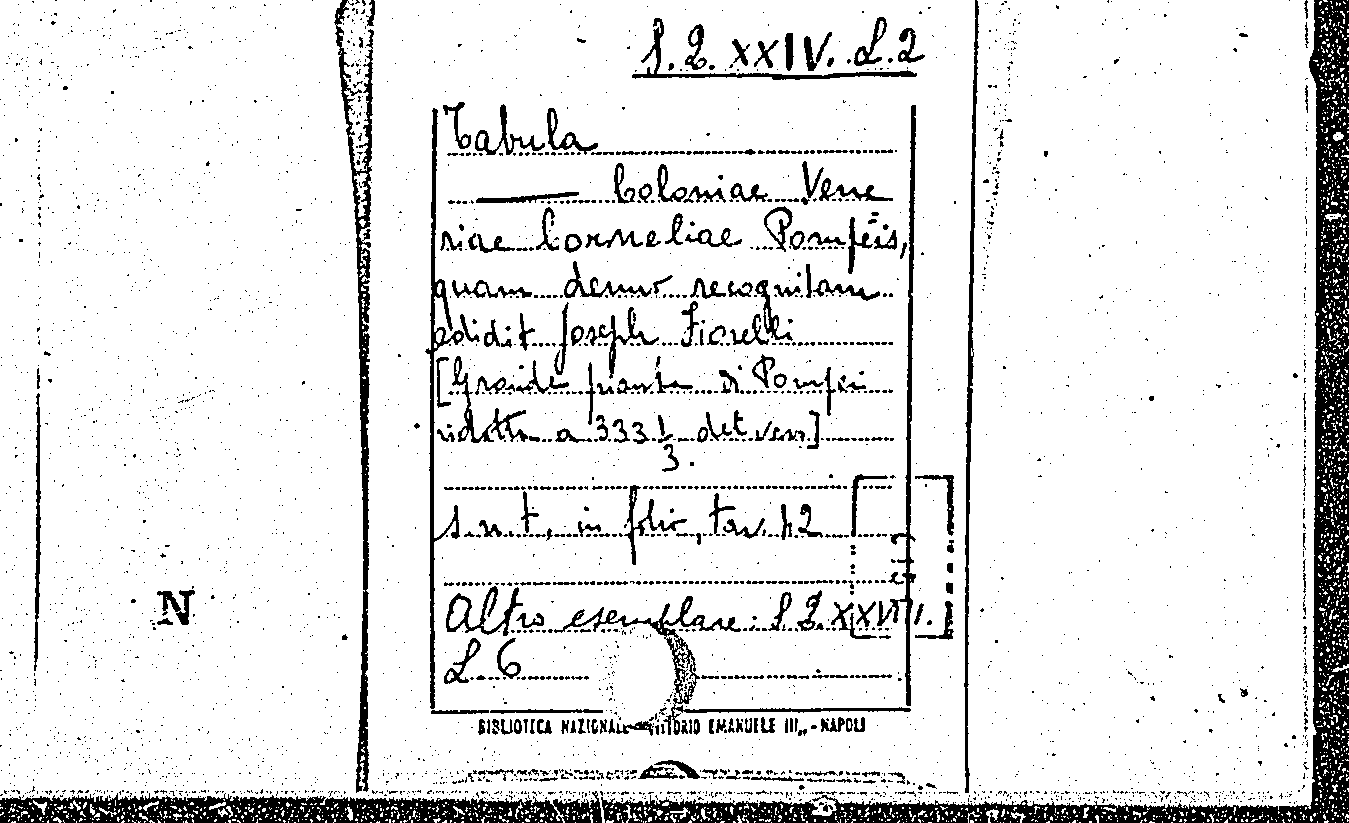 S.Q. XXIV. L.2
Tabula
——— Coloniae Vene
riae Corneliae Pompeis,
quam denuo recognitam
edidit Joseph Fiorelli
[Grande pianta di Pompei
ridotta a 333 1/3 del vero]
s.n.t., in folio, tav. 12
Altro esemplare: S.Q. XXVIII.
L. 6
BIBLIOTECA NAZIONALE VITTORIO EMANUELE III,, - NAPOLI
N